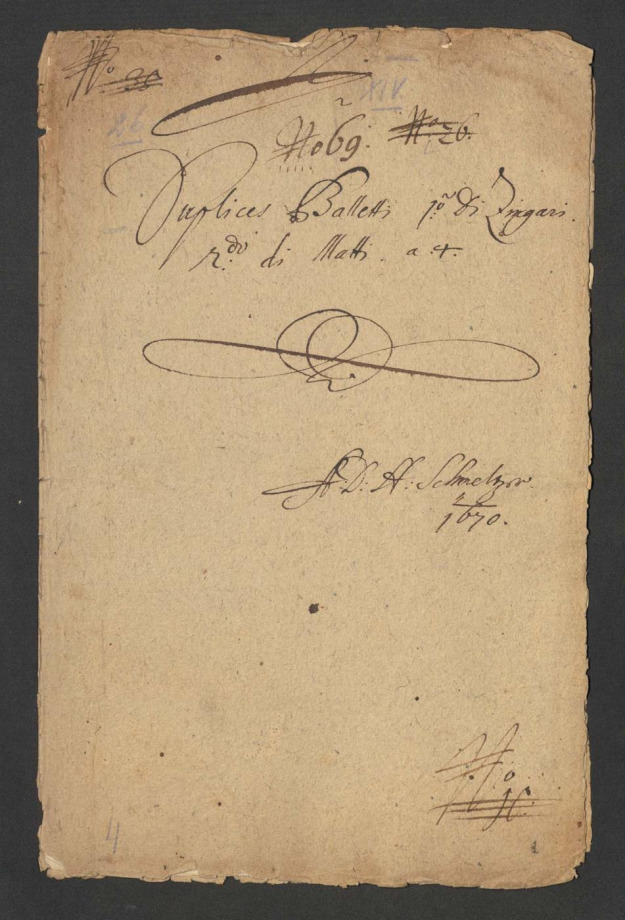 No 35
XIV.
26
No 69. No 26.
Duplices Balletti 1o Di Zingari.
2.do di Matti. a 4.
A. D: H: Schmelzer.
1670.
No
4